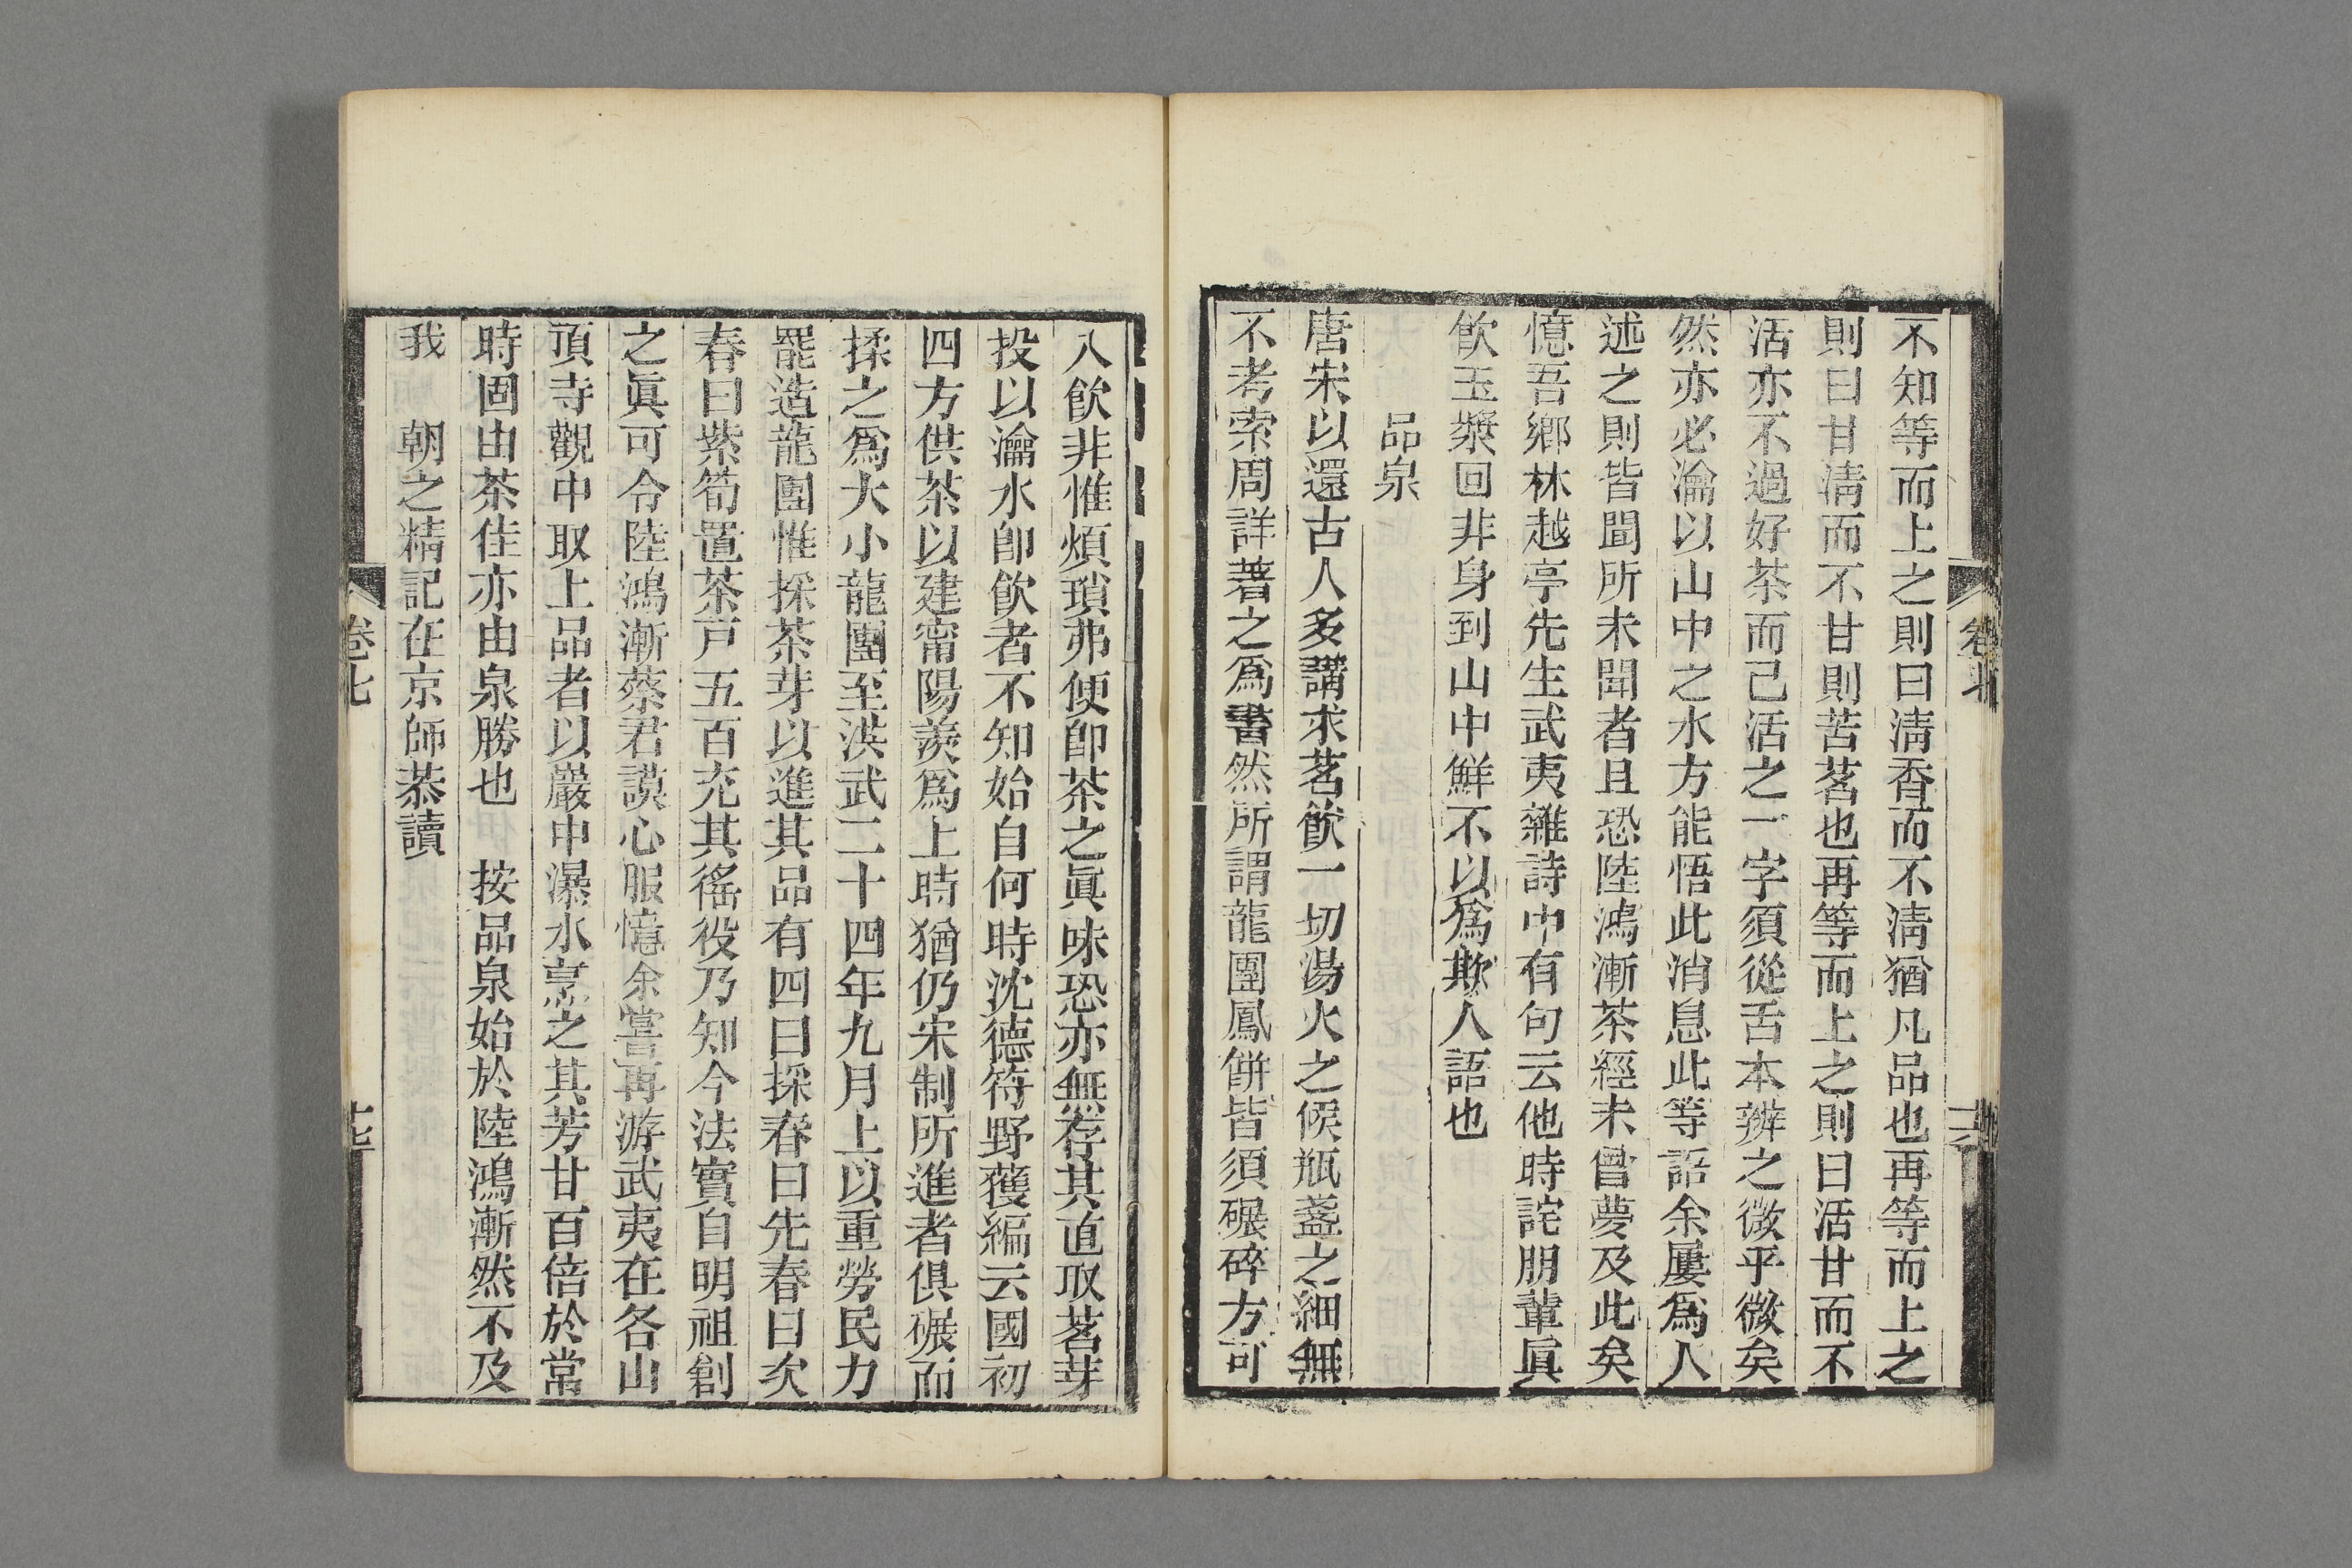 不知等而上之則曰淸香而不淸猶凡品也再等而上之
則曰甘淸而不甘則苦茗也再等而上之則曰活甘而不
活亦不過好茶而己活之一字須從舌本辨之微乎微矣
然亦必瀹以山中之水方能悟此消息此等語余屢爲人
述之則皆聞所未聞者且恐陸鴻漸茶經未曾夢及此矣
憶吾鄉林越亭先生武夷雜詩中有句云他時詫朋輩眞
飮玉漿回非身到山中鮮不以爲欺人語也
品泉
唐宋以還古人多講求茗飮一切湯火之候瓶盞之細無
不考索周詳著之爲書然所謂龍團鳳餅皆須碾碎方可
入飮非惟煩瑣弗便卽茶之眞味恐亦無存其直取茗芽
投以瀹水卽飮者不知始自何時沈德符野獲編云國初
四方供茶以建甯陽羨爲上時猶仍宋制所進者俱碾而
揉之爲大小龍團至洪武二十四年九月上以重勞民力
罷造龍團惟採茶芽以進其品有四曰採春曰先春曰次
春曰紫筍置茶戸五百充其徭役乃知今法實自明祖創
之眞可令陸鴻漸蔡君謨心服憶余嘗再游武夷在各山
頂寺觀中取上品者以巖中瀑水烹之其芳甘百倍於常
時固由茶佳亦由泉勝也　按品泉始於陸鴻漸然不及
我　朝之精記在京師恭讀
卷七
十七